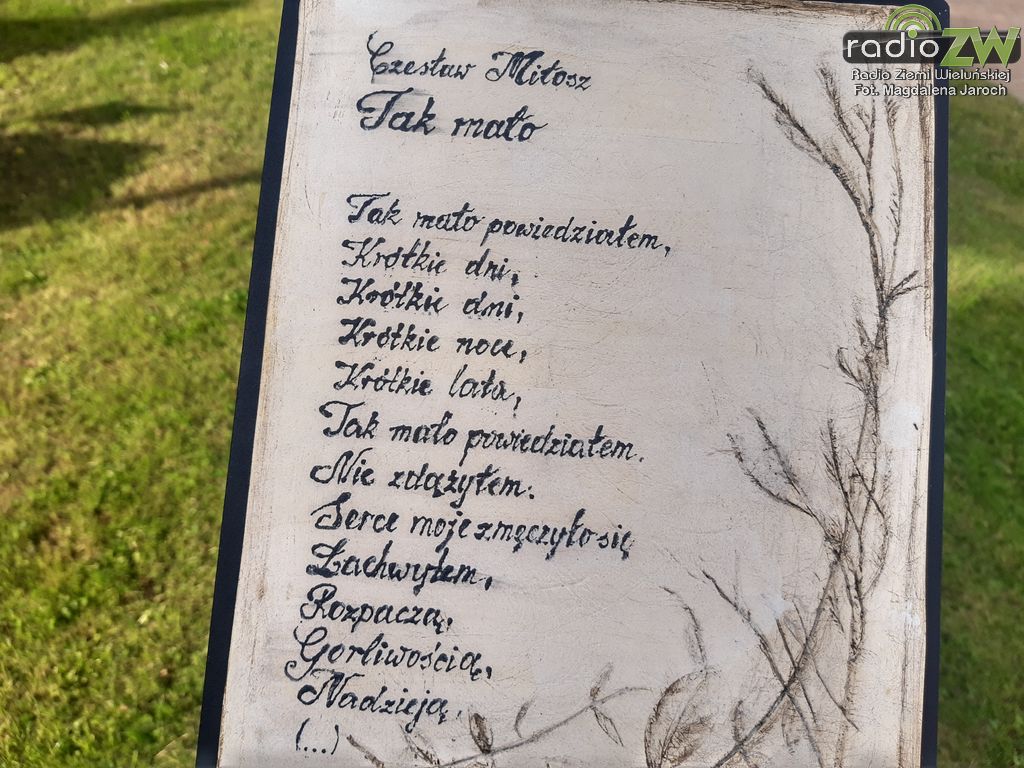 radioZW
Radio Ziemi Wieluńskiej
Fot. Magdalena Jaroch
Czesław Miłosz
Tak mało
Tak mało powiedziałem,
Krótkie dni,
Krótkie dni,
Krótkie noce,
Krótkie lata,
Tak mało powiedziałem.
Nie zdążyłem.
Serce moje zmęczyło się
Zachwytem,
Rozpaczą,
Gorliwością,
Nadzieją.
(...)